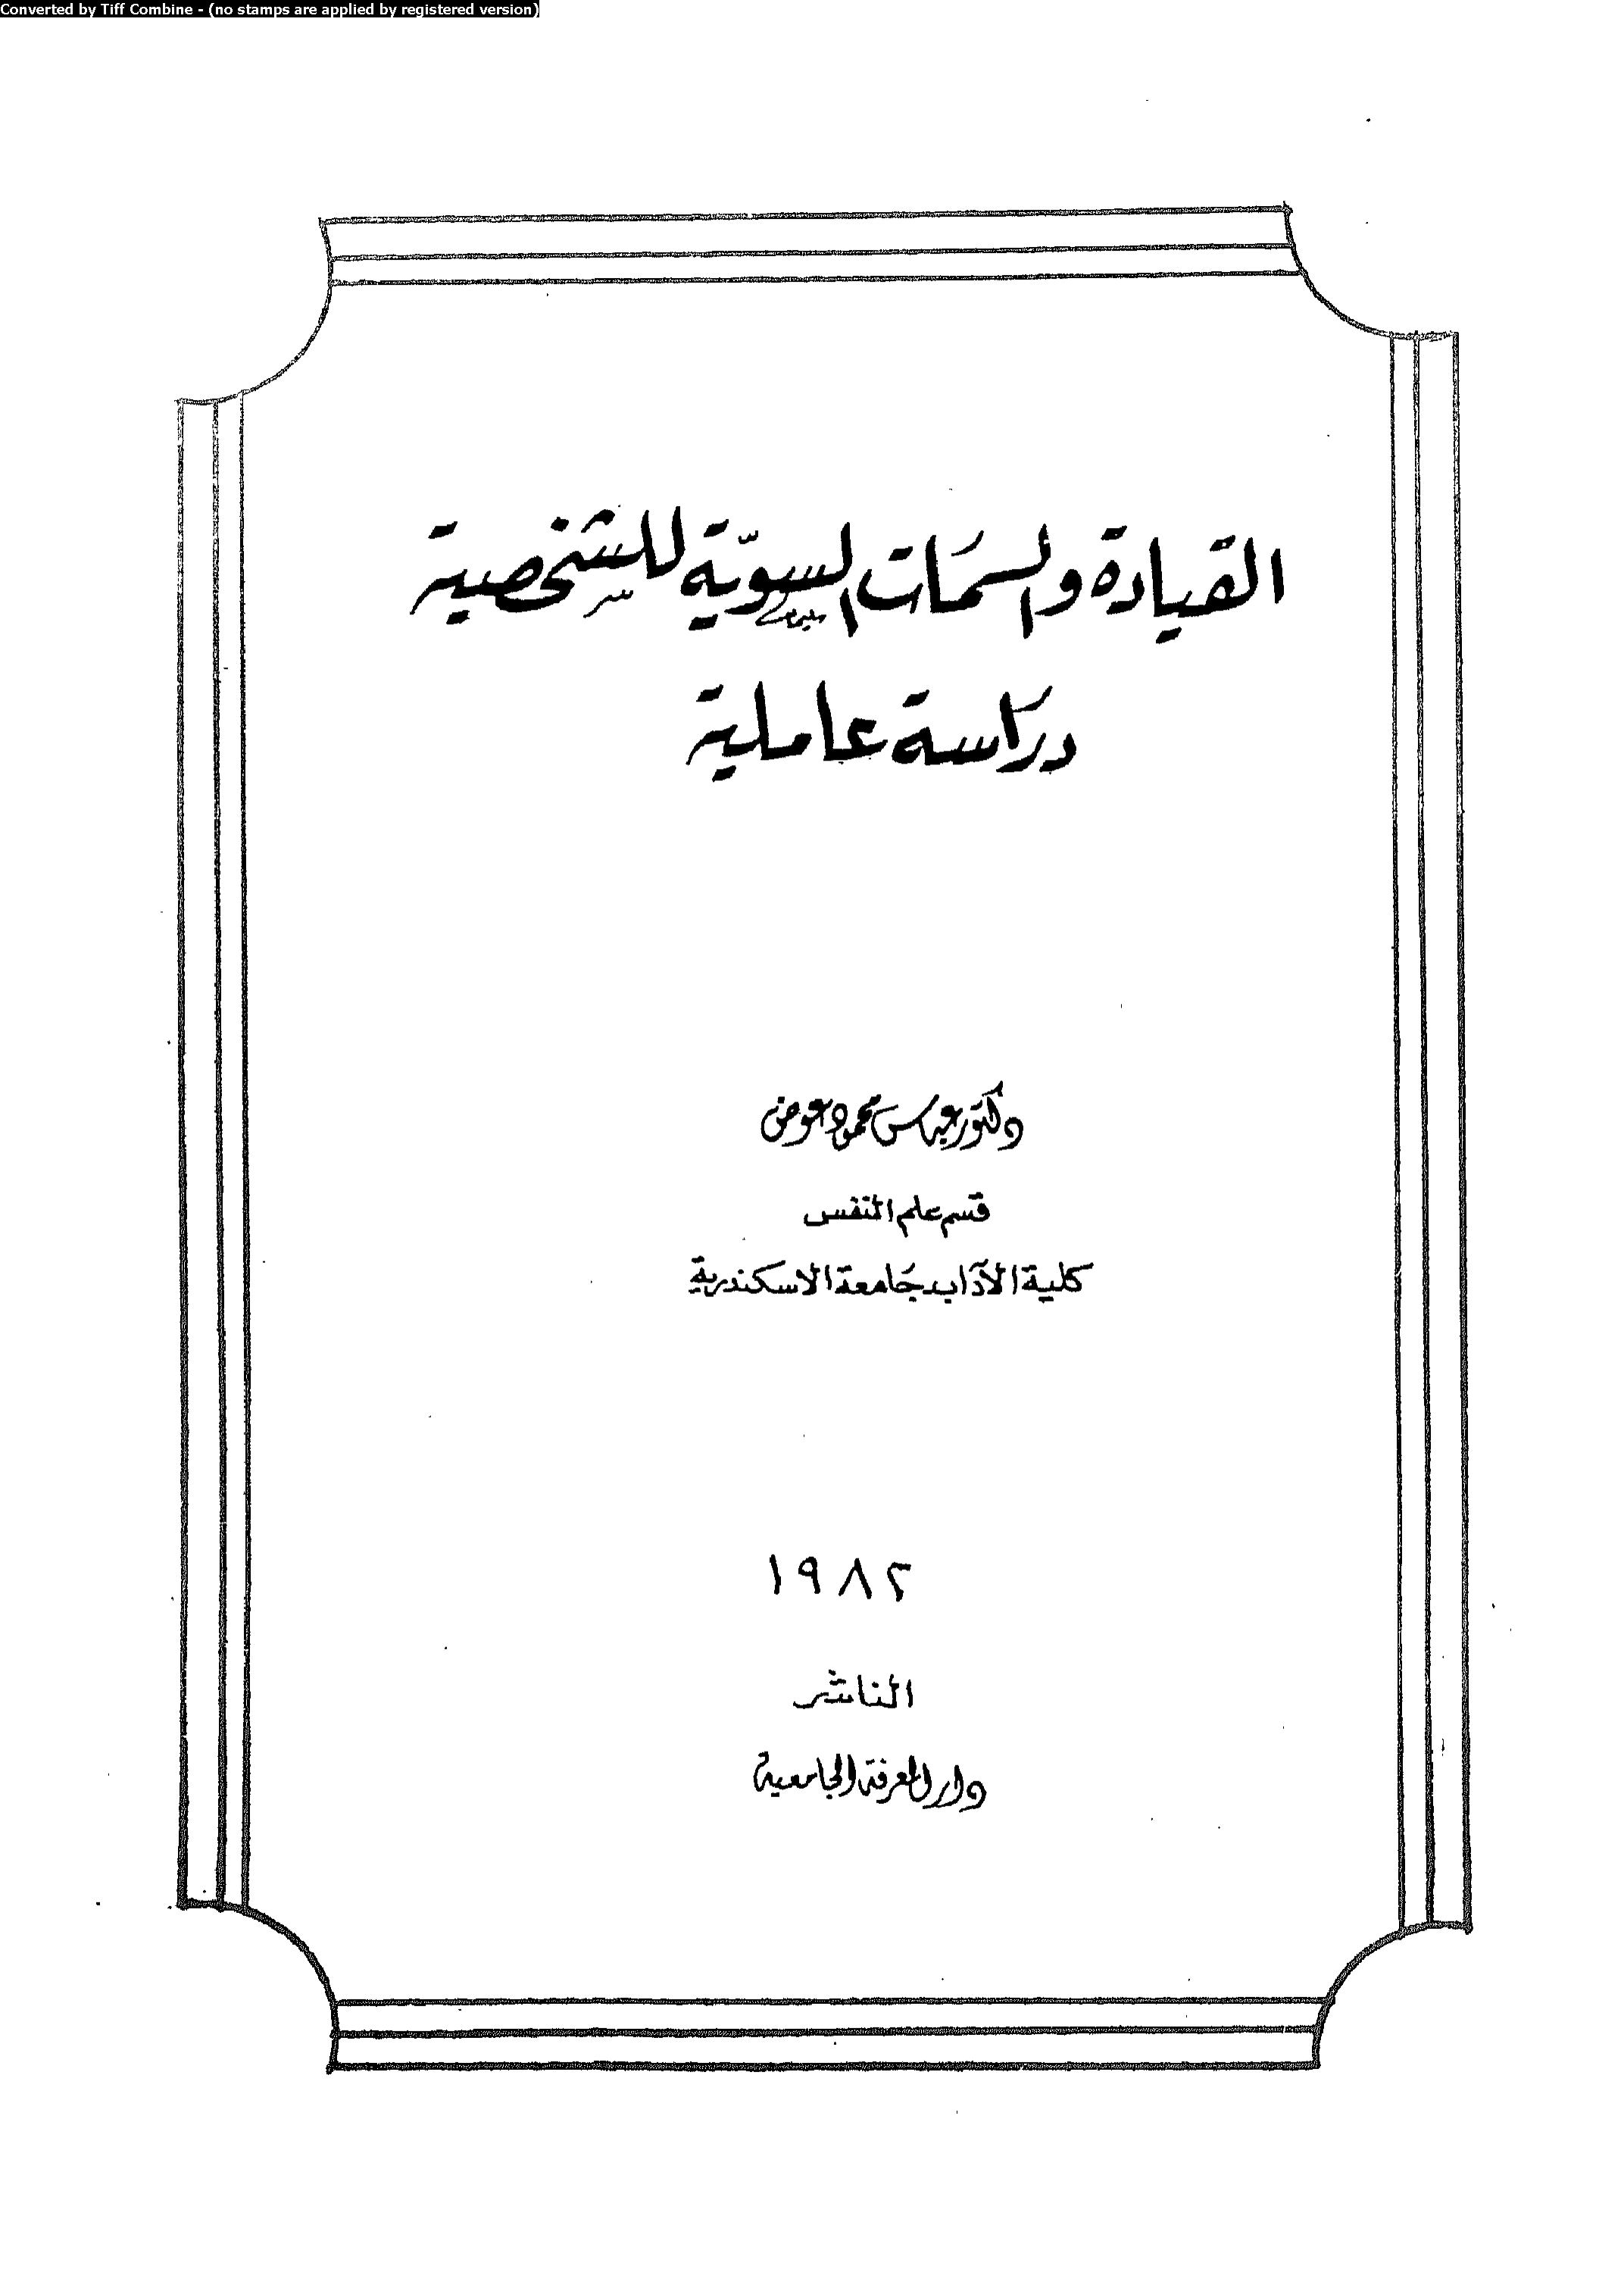 Converted by Tiff Combine - (no stamps are applied by registered version)
القيادة والسمات السويّة للشخصية
دراسة عاملية
دكتور عباس محمود عوض
قسم علم النفس
كلية الآداب جامعة الاسكندرية
١٩٨٢
الناشر
دار المعرفة الجامعية